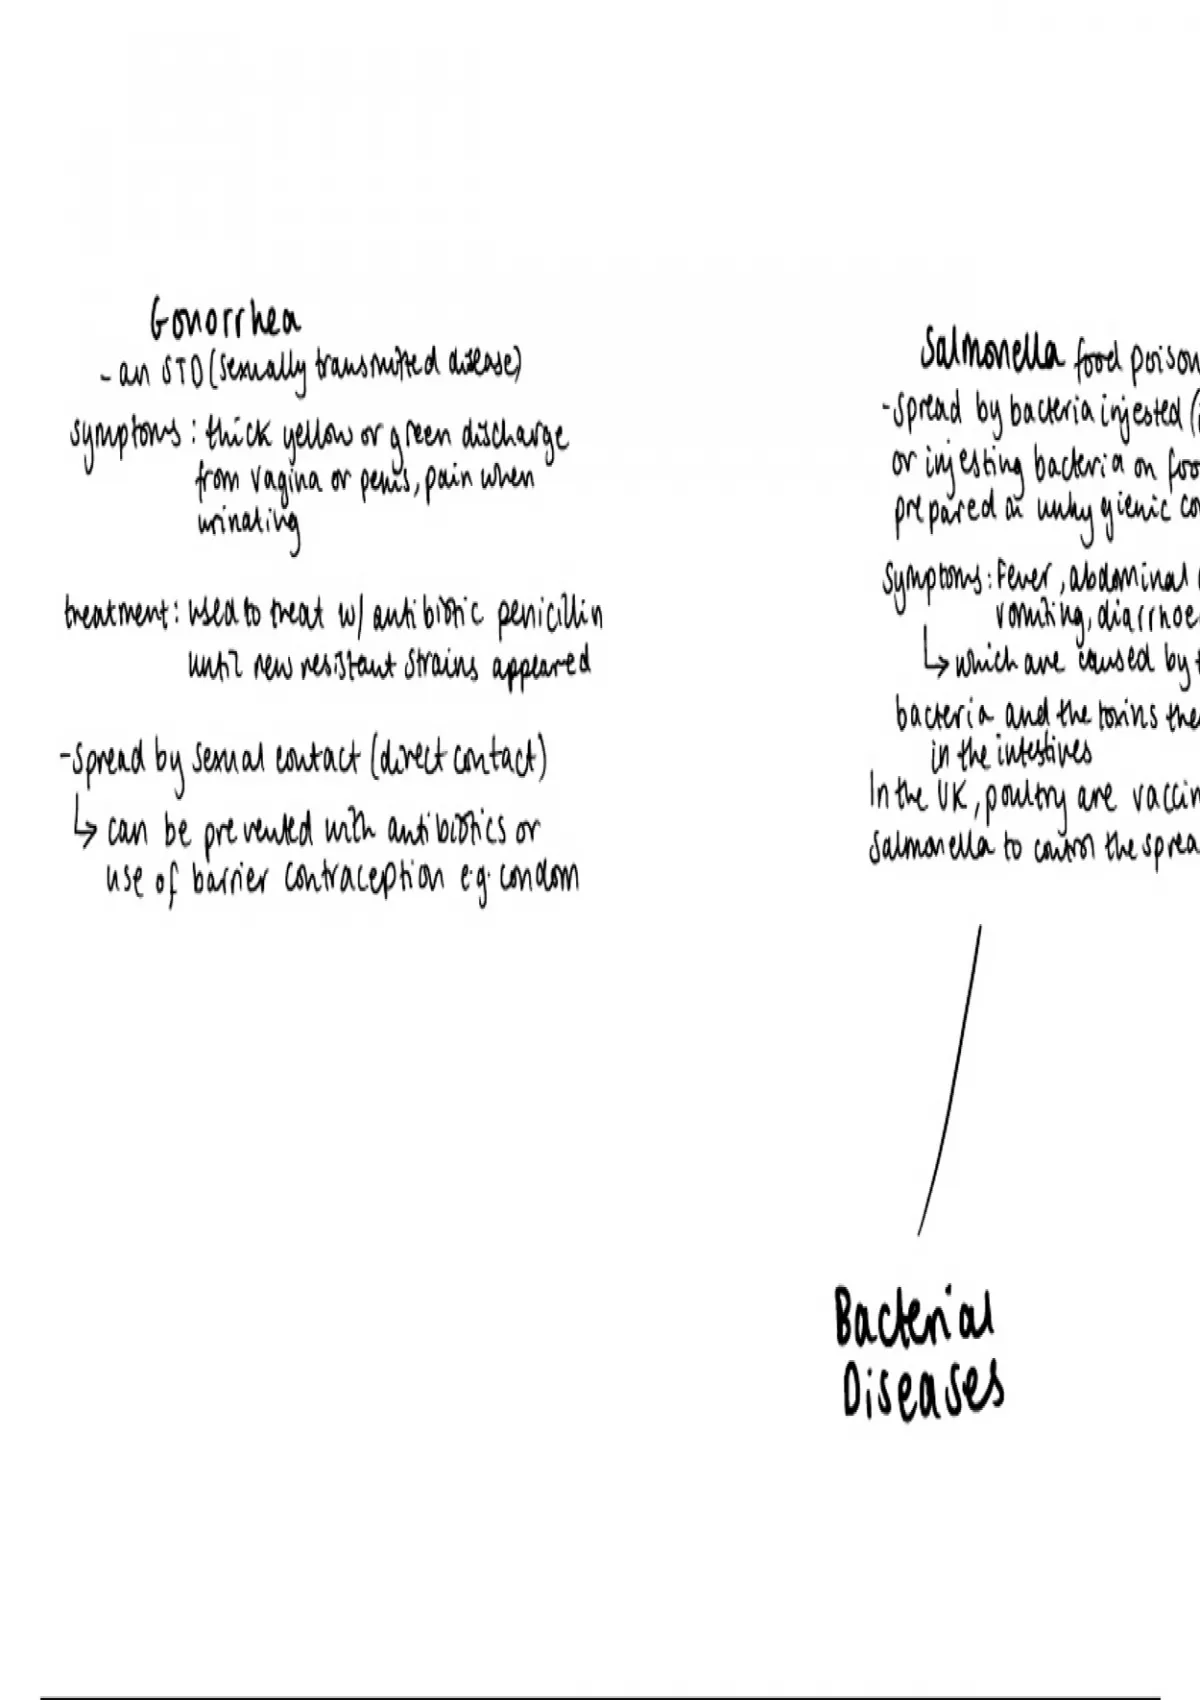 Gonorrhea
- an STD (sexually transmitted disease)
symptoms : thick yellow or green discharge
from vagina or penis, pain when
urinating
treatment : used to treat w/ antibiotic penicillin
until new resistant strains appeared
- spread by sexual contact (direct contact)
↳ can be prevented with antibiotics or
use of barrier contraception e.g. condom
Salmonella food poison
- spread by bacteria injested (i
or injesting bacteria on foo
prepared in unhygienic co
symptoms : Fever, abdominal
vomiting, diarrhoe
↳ which are caused by t
bacteria and the toxins the
in the intestines
In the UK, poultry are vaccin
salmonella to control the sprea
Bacterial
Diseases